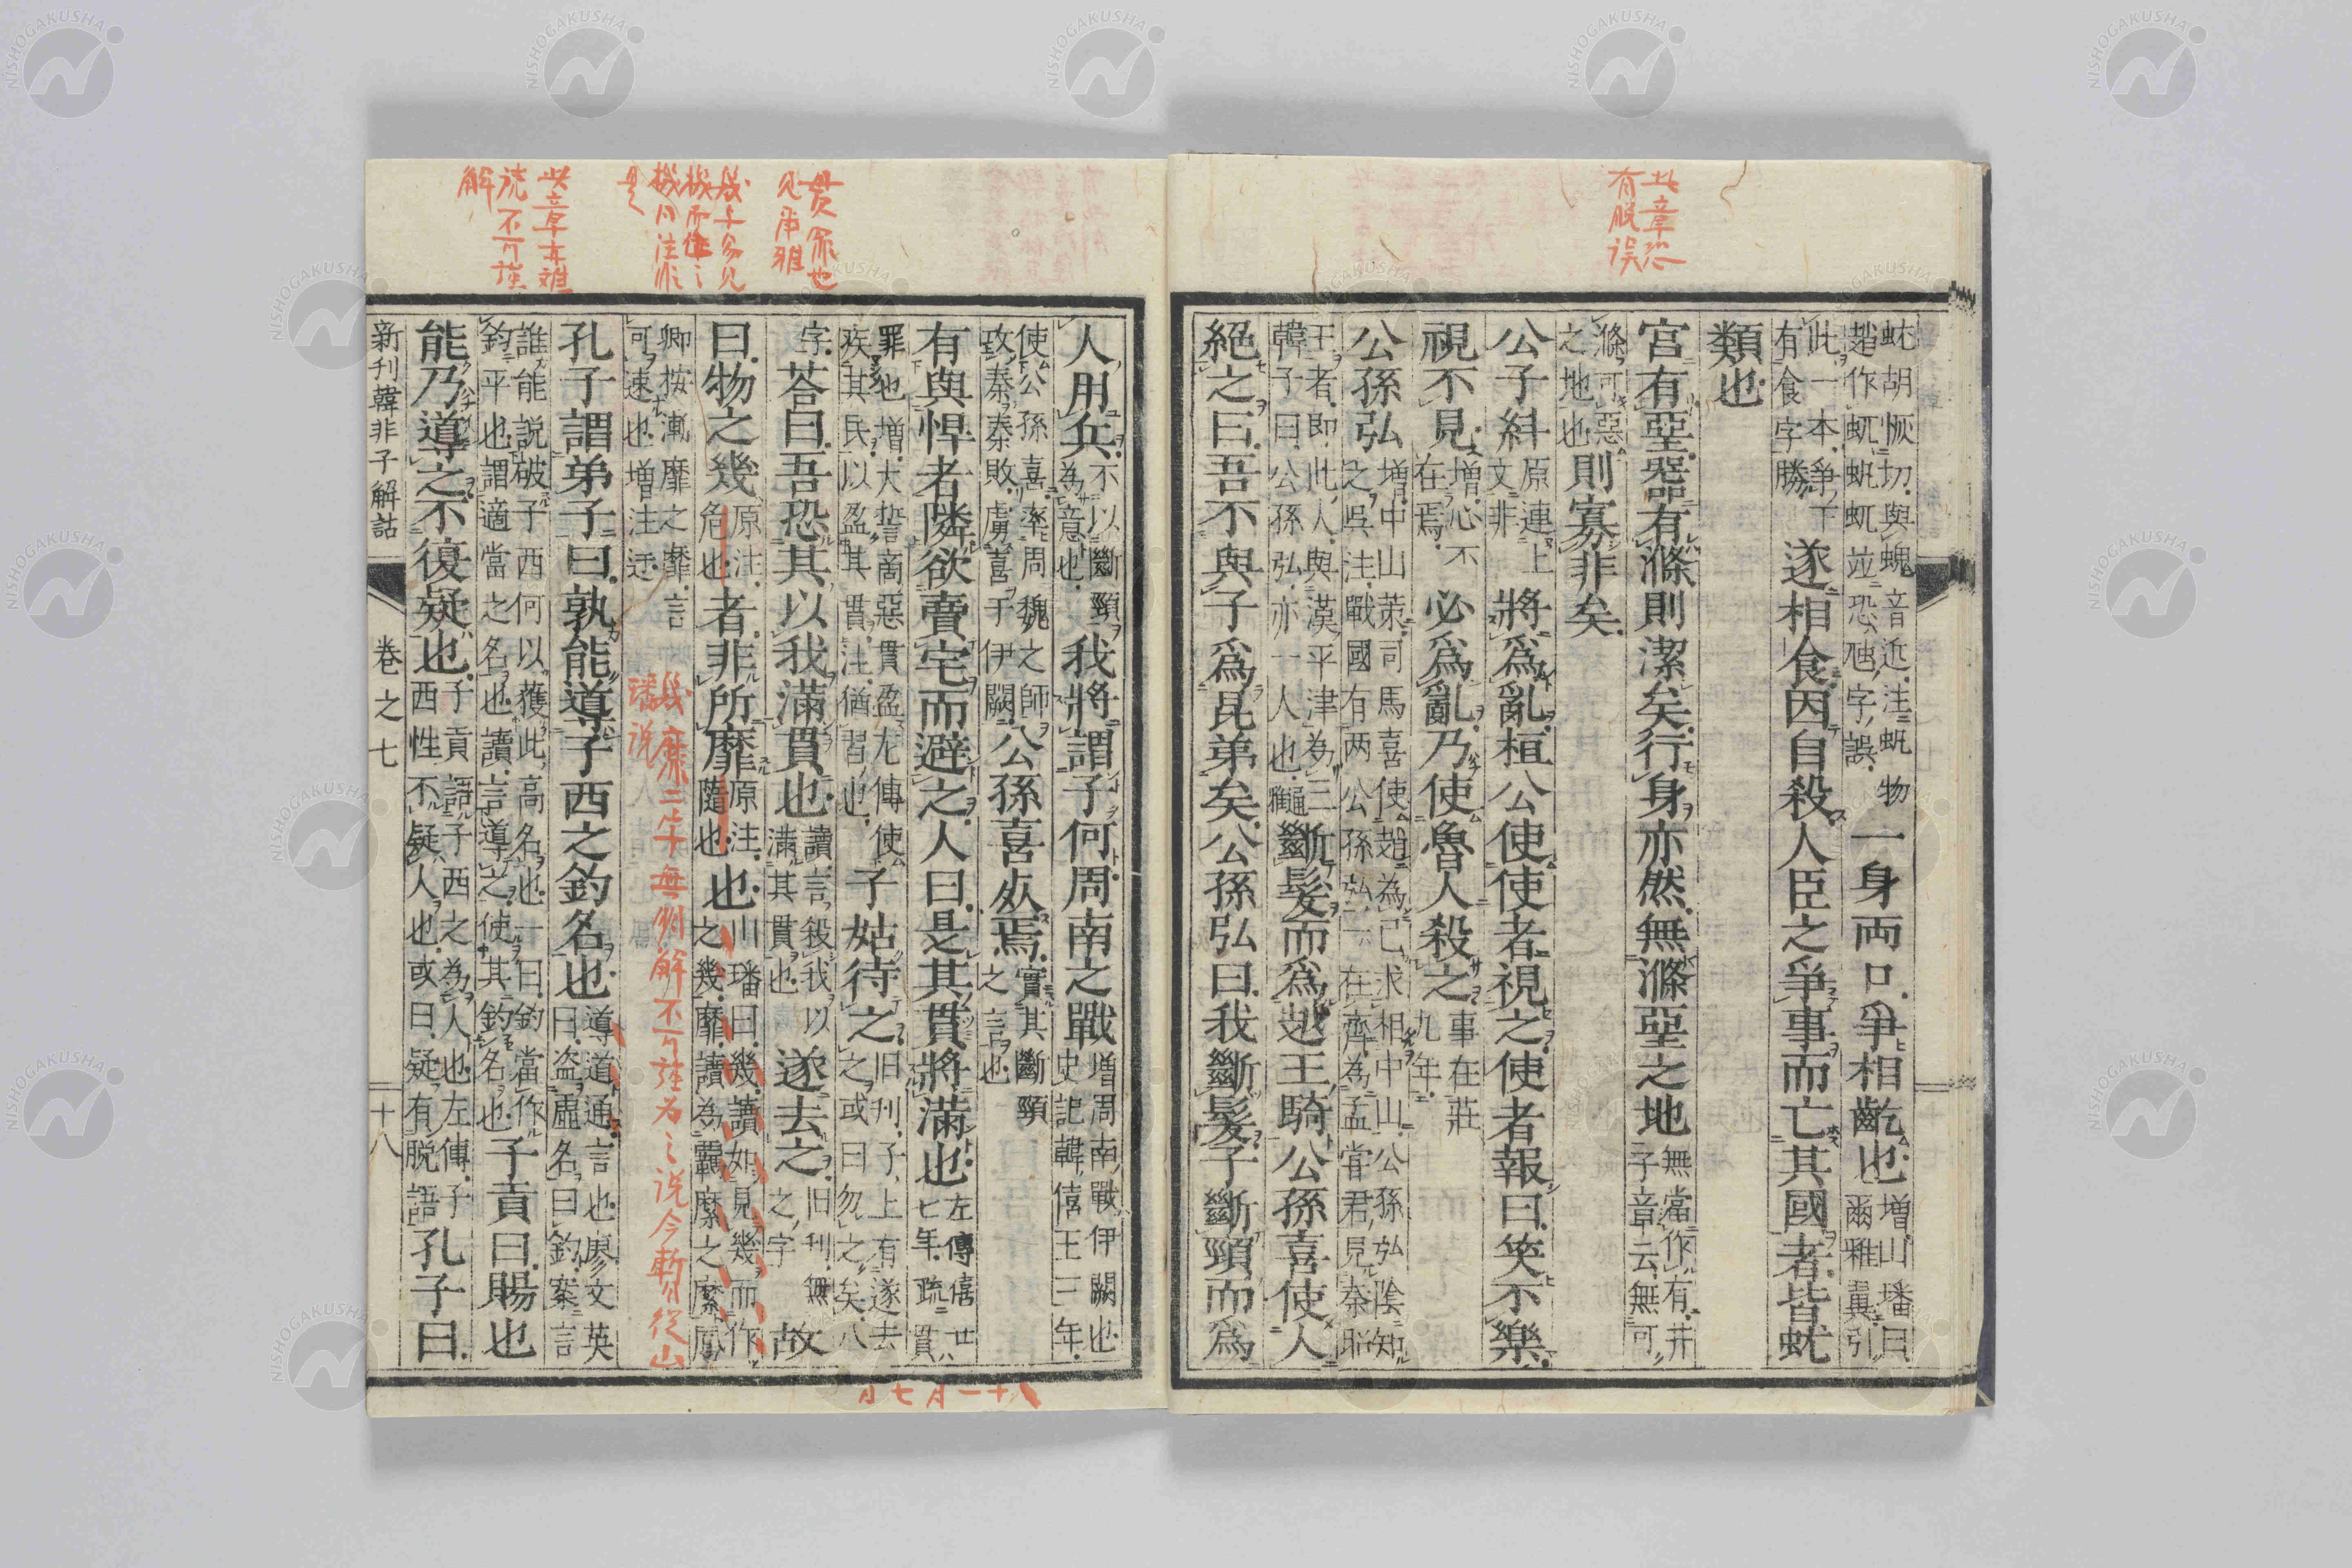 此章恐
有脱误
蚘胡恢切與螝音近注蚘物
趙作虮蚘虮竝恐虺字誤 一身兩口爭相齕也 増山璠曰
爾雅翼引
此一本爭下
有食字勝 遂相食因自殺人臣之爭事而亡其國者皆蚘
類也
宮有堊器有滌則潔矣行身亦然無滌堊之地 無當作有井
子章云無可
滌可惡
之地也 則寡非矣
公子糾 原連上
文非 將爲亂桓公使使者視之使者報曰笑不樂
視不見 増心不
在焉 必爲亂乃使魯人殺之 事在莊
九年
公孫弘 増中山策司馬喜使趙為己求相中山公孫弘陰知
之吳注戰國有两公孫弘一在齊為孟甞君見秦昭
王者即此人與漢平津為三
韓子曰公孫弘亦一人也 斷髮而爲越王騎公孫喜使人
絕之曰吾不與子爲昆弟矣公孫弘曰我斷髮子斷頸而爲
人用兵 不以斷頸
為意也 我將謂子何周南之戰 増周南戰伊闕也
史記韓僖王三年
使公孫喜率周魏之師
攻秦秦敗虜喜于伊闕 公孫喜死焉 實其斷頸
之言也
有與悍者隣欲賣宅而避之人曰是其貫將滿也 左傳僖廿
七年疏貫
罪也増大誓商惡貫盈左傳使
疾其民以盈其貫注猶習也 子姑待之 旧刊子上有遂去
之或曰勿之矣八
字 荅曰吾恐其以我滿貫也 讀言殺我以
滿其貫也 遂去之 旧刊無
之字 故
曰物之幾 原注
危也 者非所靡 原注
隨也 也 山璠曰幾讀如見幾而作
之幾靡讀為羈縻之縻鳳
卿按漸靡之靡言
可速也増注迂
幾靡二字無別解不可强为之说今暂從山
璠说
孔子謂弟子曰孰能導子西之釣名也 導道通言也廖文英
曰盗虛名曰釣案言
誰能說破子西何以獲此高名也一曰釣當作
鈞平也謂適當之名也讀言導之使其鈞名也 子貢曰賜也
能乃導之不復疑也 子貢語子西之為人也左傳子
西性不疑人也或曰疑有脱語 孔子曰
新刊韓非子解詁 卷之七 十八
贯深也
见爾雅
機而作之
機同注非
是
此章亦難
读不可强
解
十一月七日